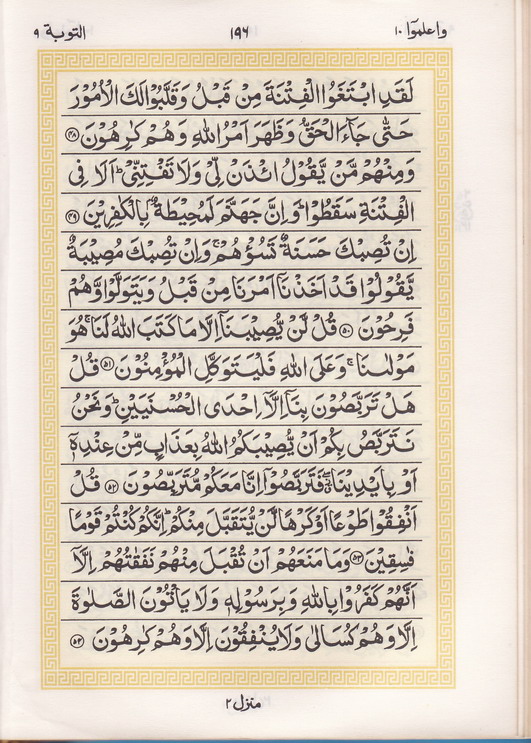 واعلموٓا ١٠ ١٩٦ التوبة ٩
لَقَدِ ابْتَغَوُا الْفِتْنَةَ مِنْ قَبْلُ وَقَلَّبُوْا لَكَ الْاُمُوْرَ
حَتّٰى جَآءَ الْحَقُّ وَظَهَرَ اَمْرُ اللّٰهِ وَهُمْ كٰرِهُوْنَ ﴿۴۸﴾
وَمِنْهُمْ مَّنْ يَّقُوْلُ ائْذَنْ لِّيْ وَلَا تَفْتِنِّيْ ؕ اَلَا فِي
الْفِتْنَةِ سَقَطُوْا ؕ وَاِنَّ جَهَنَّمَ لَمُحِيْطَةٌۢ بِالْكٰفِرِيْنَ ﴿۴۹﴾
اِنْ تُصِبْكَ حَسَنَةٌ تَسُؤْهُمْ ۚ وَاِنْ تُصِبْكَ مُصِيْبَةٌ
يَّقُوْلُوْا قَدْ اَخَذْنَاۤ اَمْرَنَا مِنْ قَبْلُ وَيَتَوَلَّوْا وَّهُمْ
فَرِحُوْنَ ﴿۵۰﴾ قُلْ لَّنْ يُّصِيْبَنَاۤ اِلَّا مَا كَتَبَ اللّٰهُ لَنَا ۚ هُوَ
مَوْلٰىنَا ۚ وَعَلَى اللّٰهِ فَلْيَتَوَكَّلِ الْمُؤْمِنُوْنَ ﴿۵۱﴾ قُلْ
هَلْ تَرَبَّصُوْنَ بِنَاۤ اِلَّاۤ اِحْدَى الْحُسْنَيَيْنِ ؕ وَنَحْنُ
نَتَرَبَّصُ بِكُمْ اَنْ يُّصِيْبَكُمُ اللّٰهُ بِعَذَابٍ مِّنْ عِنْدِهٖۤ
اَوْ بِاَيْدِيْنَا ۖ فَتَرَبَّصُوْۤا اِنَّا مَعَكُمْ مُّتَرَبِّصُوْنَ ﴿۵۲﴾ قُلْ
اَنْفِقُوْا طَوْعًا اَوْ كَرْهًا لَّنْ يُّتَقَبَّلَ مِنْكُمْ ؕ اِنَّكُمْ كُنْتُمْ قَوْمًا
فٰسِقِيْنَ ﴿۵۳﴾ وَمَا مَنَعَهُمْ اَنْ تُقْبَلَ مِنْهُمْ نَفَقٰتُهُمْ اِلَّاۤ
اَنَّهُمْ كَفَرُوْا بِاللّٰهِ وَبِرَسُوْلِهٖ وَلَا يَاْتُوْنَ الصَّلٰوةَ
اِلَّا وَهُمْ كُسَالٰى وَلَا يُنْفِقُوْنَ اِلَّا وَهُمْ كٰرِهُوْنَ ﴿۵۴﴾
منزل ۲